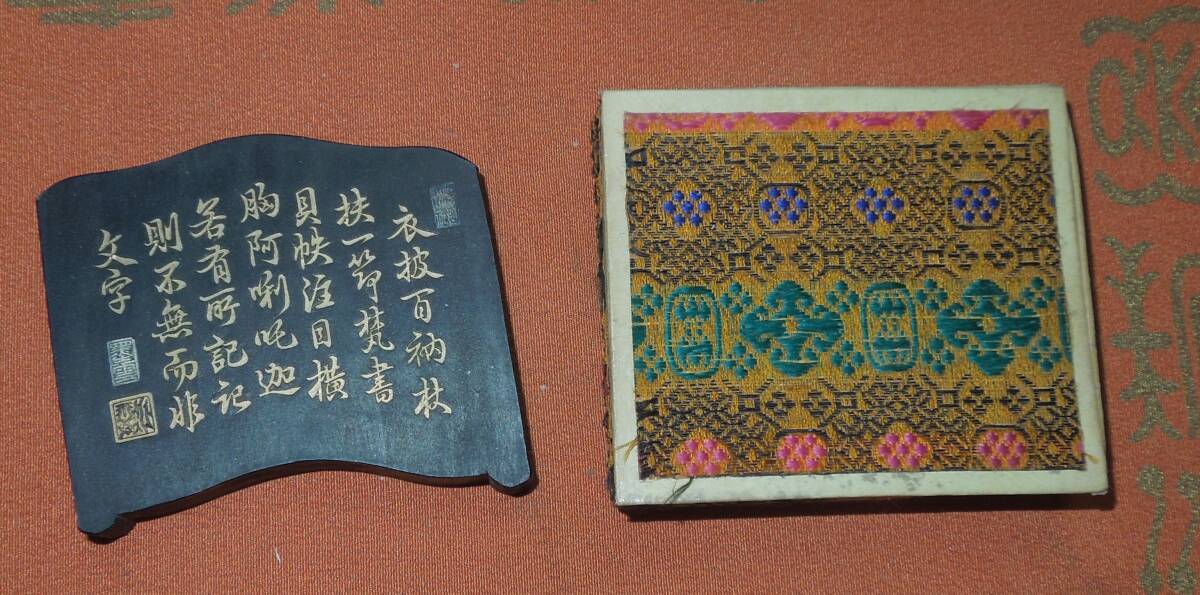 衣披百衲杖
扶一笻梵書
貝帙注目橫
胸阿唎吒迦
若有所記記
則不無而非
文字